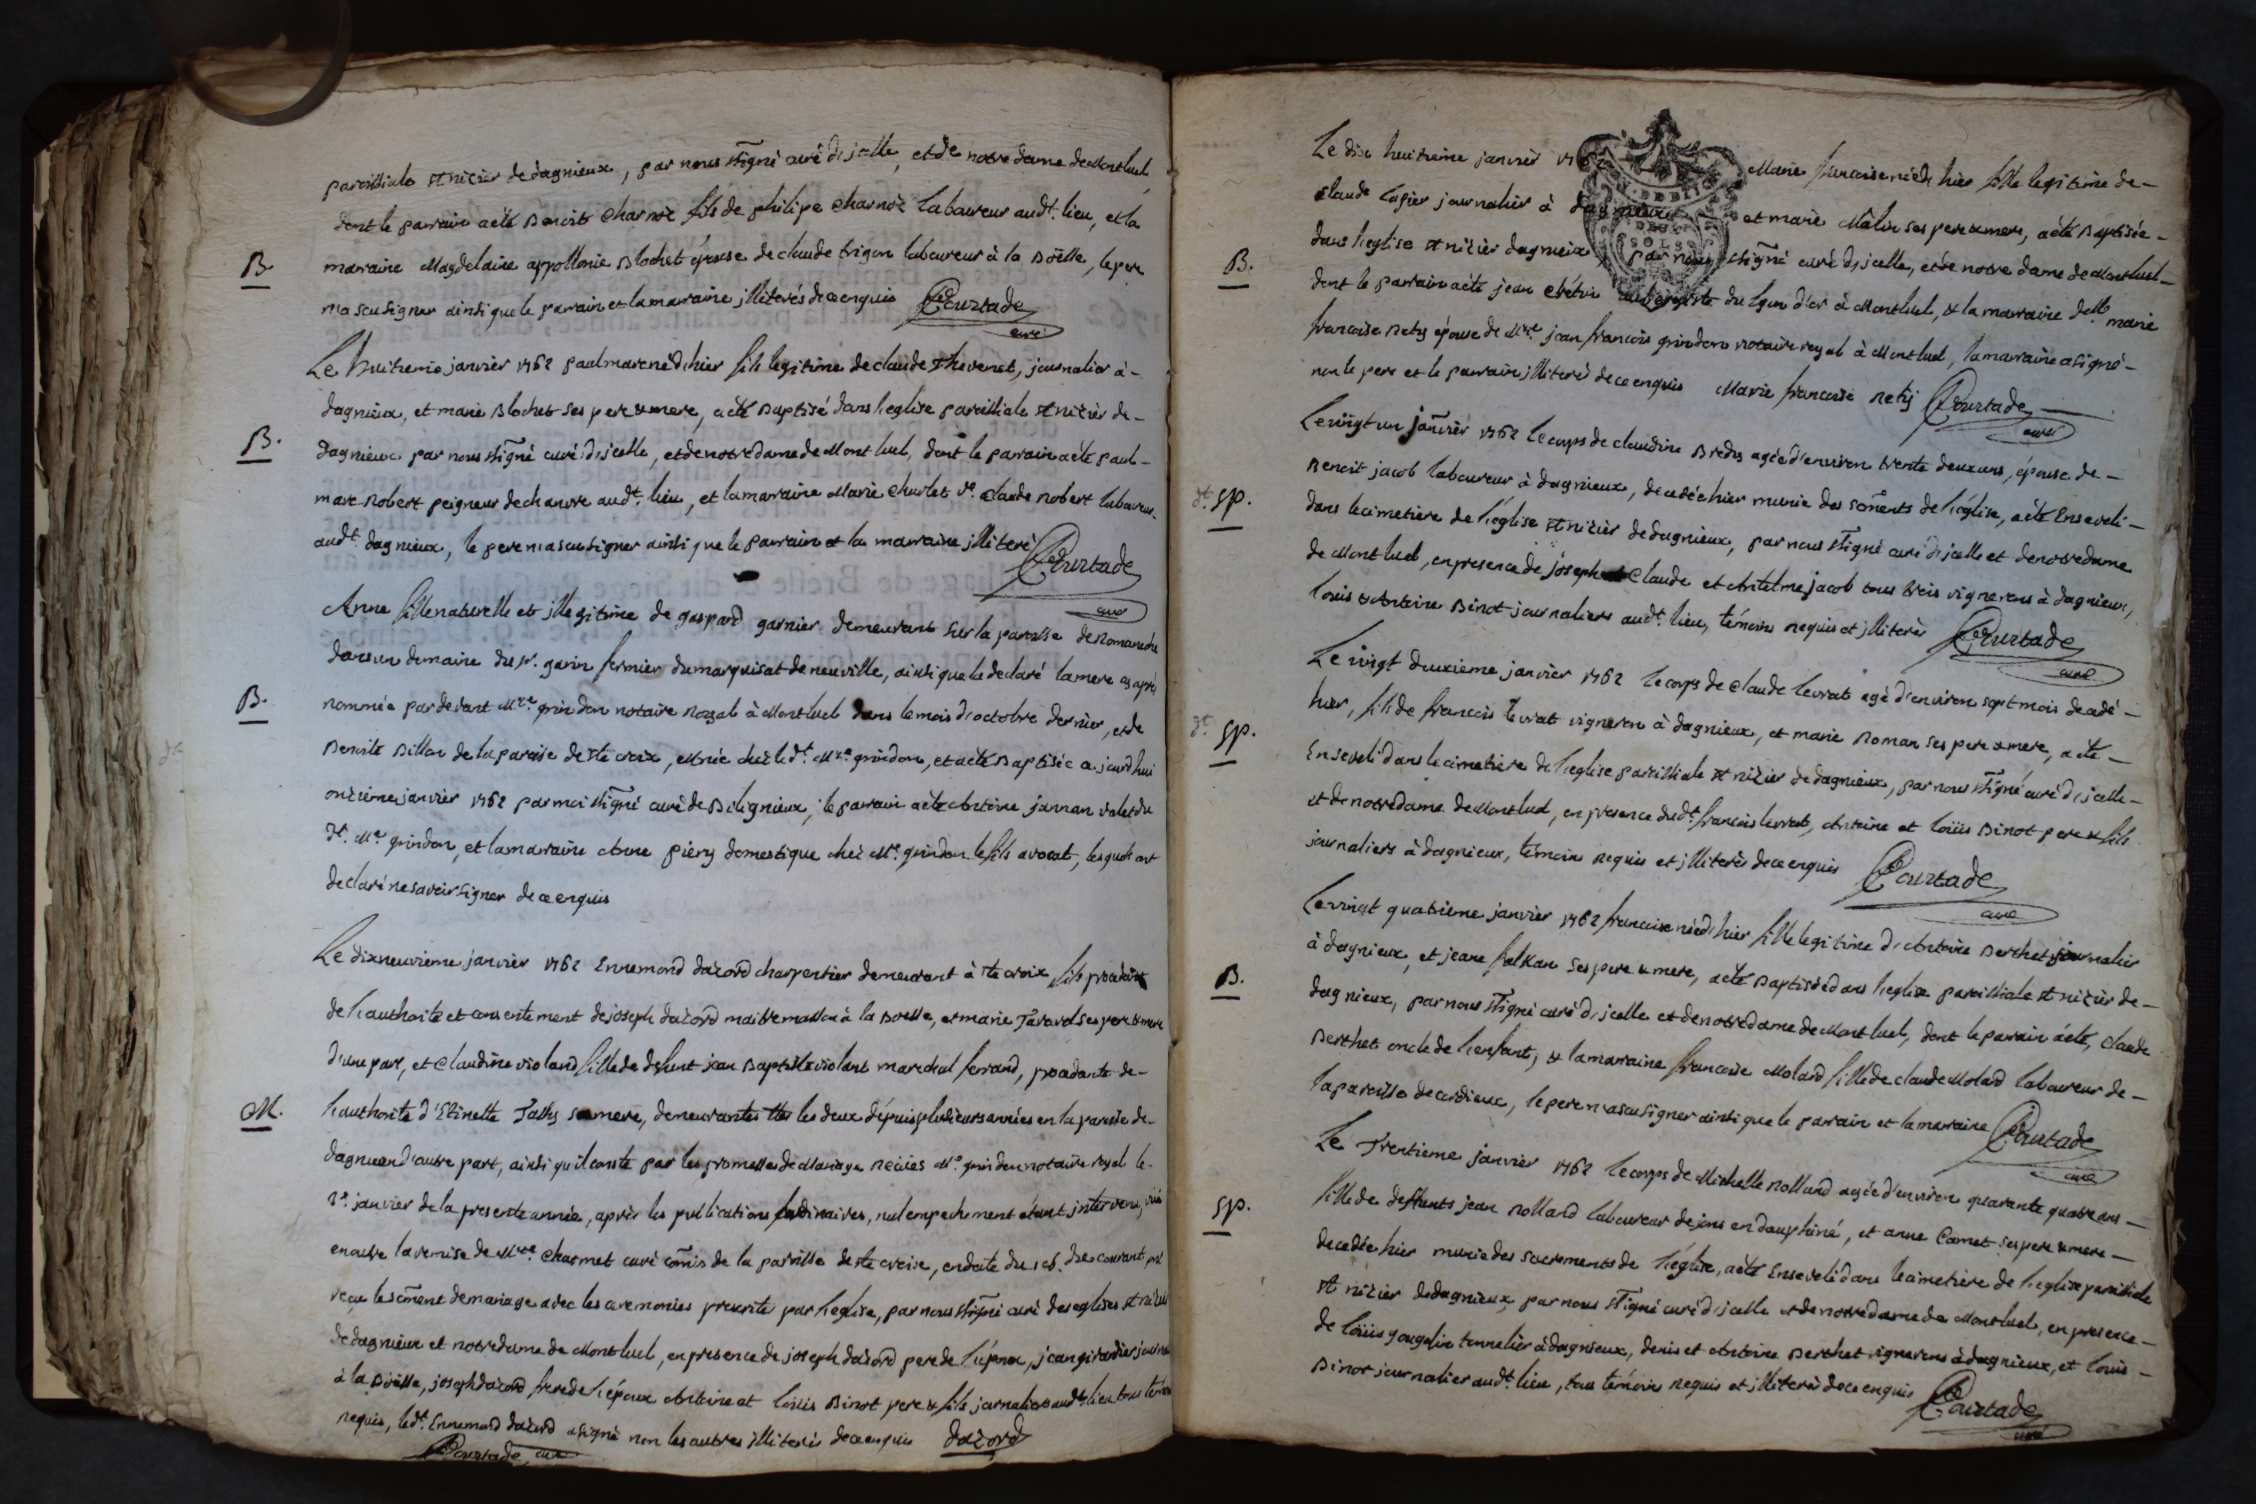 paroissiale st nizier de dagnieux, par nous ssigné curé d'jcelle, et de notre dame de Montluel
dont le parrain a été Benoit Charnoz fils de philipe Charnoz laboureur audt. lieu, et la
B. marraine Magdelaine appollonie Blochet épouse de claude trigon laboureur à la Boëlle, le pere
n'a scu signer ainsi que le parrain et la marraine jlliterés de ce enquis Courtade
curé
Le huitieme janvier 1762 paul marc né d'hier fils legitime de claude Thevenet, journalier à
dagnieux, et marie Blochet ses pere & mere, a été Baptisé dans l'eglise paroissiale st nizier de
B. dagnieux par nous ssigné curé d'jcelle, et de notre dame de Mont luel, dont le parrain a été paul
marc Robert peigneur de chanvre audt. lieu, et la marraine Marie Churlet ve. claude Robert laboureur
audt. dagnieux, le pere n'a scu signer ainsi que le parrain et la marraine jlliteré Courtade
curé
Anne fille naturelle et jllegitime de gaspard garnier demeurant sur la paroisse de Romaneche
dans un domaine du sr. garin fermier du marquisat de neuville, ainsi que l'a declaré la mere cy aprés
B. nommée par devant Mre. grindon notaire Royal à Montluel dans le mois d'octobre dernier, et de
Benoite Billon de la paroisse de ste croix, née chez le dt. Mre grindon, et a été Baptisée aujourd'hui
onzieme janvier 1762 par moi ssigné curé de Biligneux, le parrain a été Antoine janran valet du
dt. Me grindon, et la marraine Anne piéry domestique chez Me. grindon le fils avocat, lesquels ont
declaré ne savoir signer de ce enquis
Le dixneuvieme janvier 1762 Ennemond dazord charpentier demeurant à ste croix fils procedant
de l'authorité et consentement de joseph dazord maitre masson à la Boësse, et marie Taraval ses pere & mere
d'une part, et Claudine violand fille de defunt jean Baptiste violant marechal ferrand, procedante de
M. l'authorité d'Etinette Tathy sa mere, demeurantes les deux depuis plusieurs années en la paroisse de
dagnieux d'autre part, ainsi qu'il conste par les promesses de Mariage reçues Me. grindon notaire royal le
3e. janvier de la presente année, après les publications ordinaires, nul empechement étant jntervenu, vüe
en outre la remise de Mre. Charmet curé comis de la paroisse de ste croix, en date du 18. du courant, ont
reçu le sement de mariage avec les ceremonies prescrite par l'eglise, par nous ssigné curé des eglises st nizier
de dagnieux et notre dame de Mont luel, en presence de joseph dazord pere de l'époux, jean girardier journalier
à la Boësse, joseph dazord frere de l'époux Antoine et Loüis Binot pere & fils journaliers audt. lieu tous témoins
requis, le dt. Ennemond dazord a signé non les autres jlliterés de ce enquis dazord
Courtade curé
Le dix huitieme janvier 1762 Marie francoise née d'hier fille legitime de
claude Lagier journalier à dagnieux et marie Mâlin ses pere & mere, a été Baptisée
B. dans l'eglise st nizier dagnieux par nous ssigné curé d'jcelle, et de notre dame de Montluel
dont le parrain a été jean Chétin aubergiste du lyon d'or à Montluel, & la marraine delle. marie
francoise Retij épouse de Mre. jean francois grindon notaire royal à Montluel, la marraine a signé
non le pere et le parrain jlliterés de ce enquis Marie francoise Retij Courtade
curé
Le vingt un janvier 1762 le corps de claudine Bredy agée d'environ trente deux ans, épouse de
Benoit jacob laboureur à dagnieux, decedée hier munie des scments de l'église, a été Enseveli
dt. Sp. dans le cimetiere de l'église st nizier de dagnieux, par nous ssigné curé d'jcelle et de notre dame
de Mont luel, en presence de joseph Claude et Antelme jacob tous trois vignerons à dagnieux,
Loüis & Antoine Binot journaliers audt. lieu, témoins requis et jlliterés Courtade
curé
Le vingt deuxieme janvier 1762 le corps de claude levrat agé d'environ sept mois decedé
dt. Sp. hier, fils de francois levrat vigneron à dagnieux, et marie Roman ses pere & mere, a été
Enseveli dans le cimetiere de l'eglise paroissiale st nizier de dagnieux, par nous ssigné curé d'jcelle
et de notre dame de Montluel, en presence du dt. francois levrat, Antoine et Loüis Binot pere & fils
journaliers à dagnieux, témoins requis et jlliterés de ce enquis Courtade
curé
Le vingt quatrieme janvier 1762 francoise née d'hier fille legitime d'Antoine Berthet journalier
à dagnieux, et jeane falkan ses pere & mere, a été Baptisée dans l'eglise paroissiale st nizier de
B. dagnieux, par nous ssigné curé d'jcelle et de notre dame de Mont luel, dont le parrain a été, Claude
Berthet oncle de l'enfant, & la marraine francoise Molard fille de claude Molard laboureur de
la paroisse de cordieux, le pere n'a scu signer ainsi que le parrain et la marraine Courtade
curé
Le Trentieme janvier 1762 le corps de Michelle Rolland agée d'environ quarante quatre ans
Sp. fille de deffunts jean Rolland laboureur de jons en dauphiné, et anne Comet ses pere & mere
decedée hier munie des sacrements de l'église, a été Enseveli dans le cimetiere de l'eglise paroissiale
st nizier de dagnieux par nous ssigné curé d'jcelle et de notre dame de Montluel, en presence
de Loüis gougelin tonnelier à dagnieux, denis et Antoine Berthet vignerons à dagnieux, et Loüis
Binot journalier audt. lieu, tous témoins requis et jlliterés de ce enquis Courtade
curé